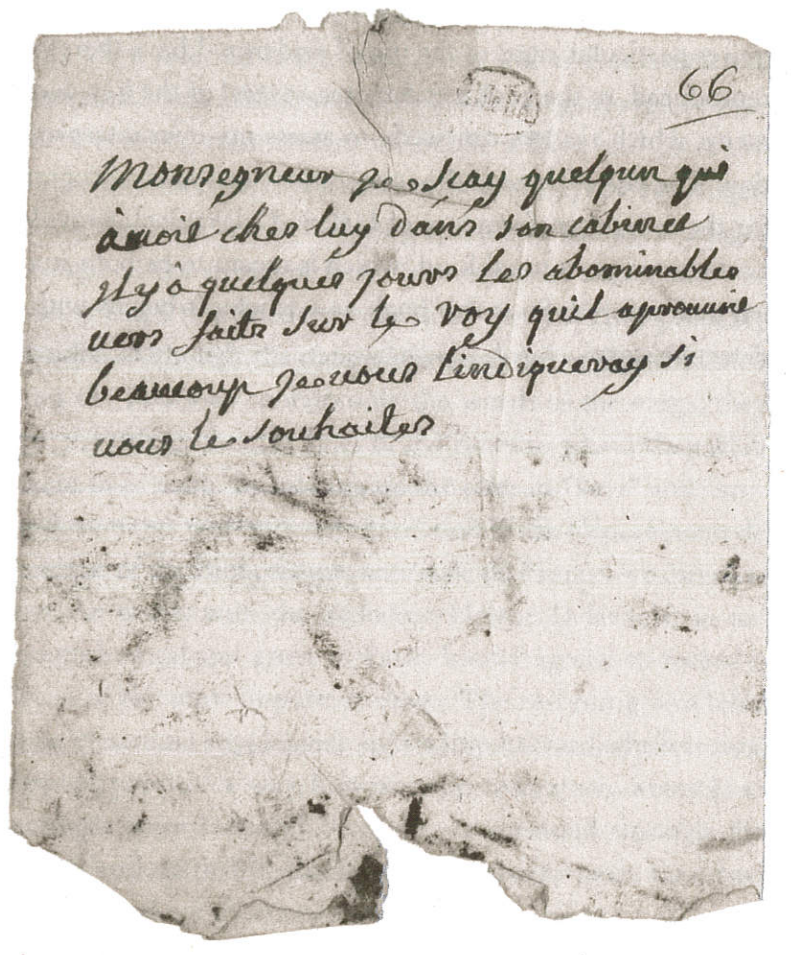 66
Monsegneur je scay quelqun qui
àuoit ches luy dans son cabinet
il y à quelques jours les abominables
uers faits sur le roy quil aprouuoit
beaucoup je uous lindiqueray si
uous le souhaites